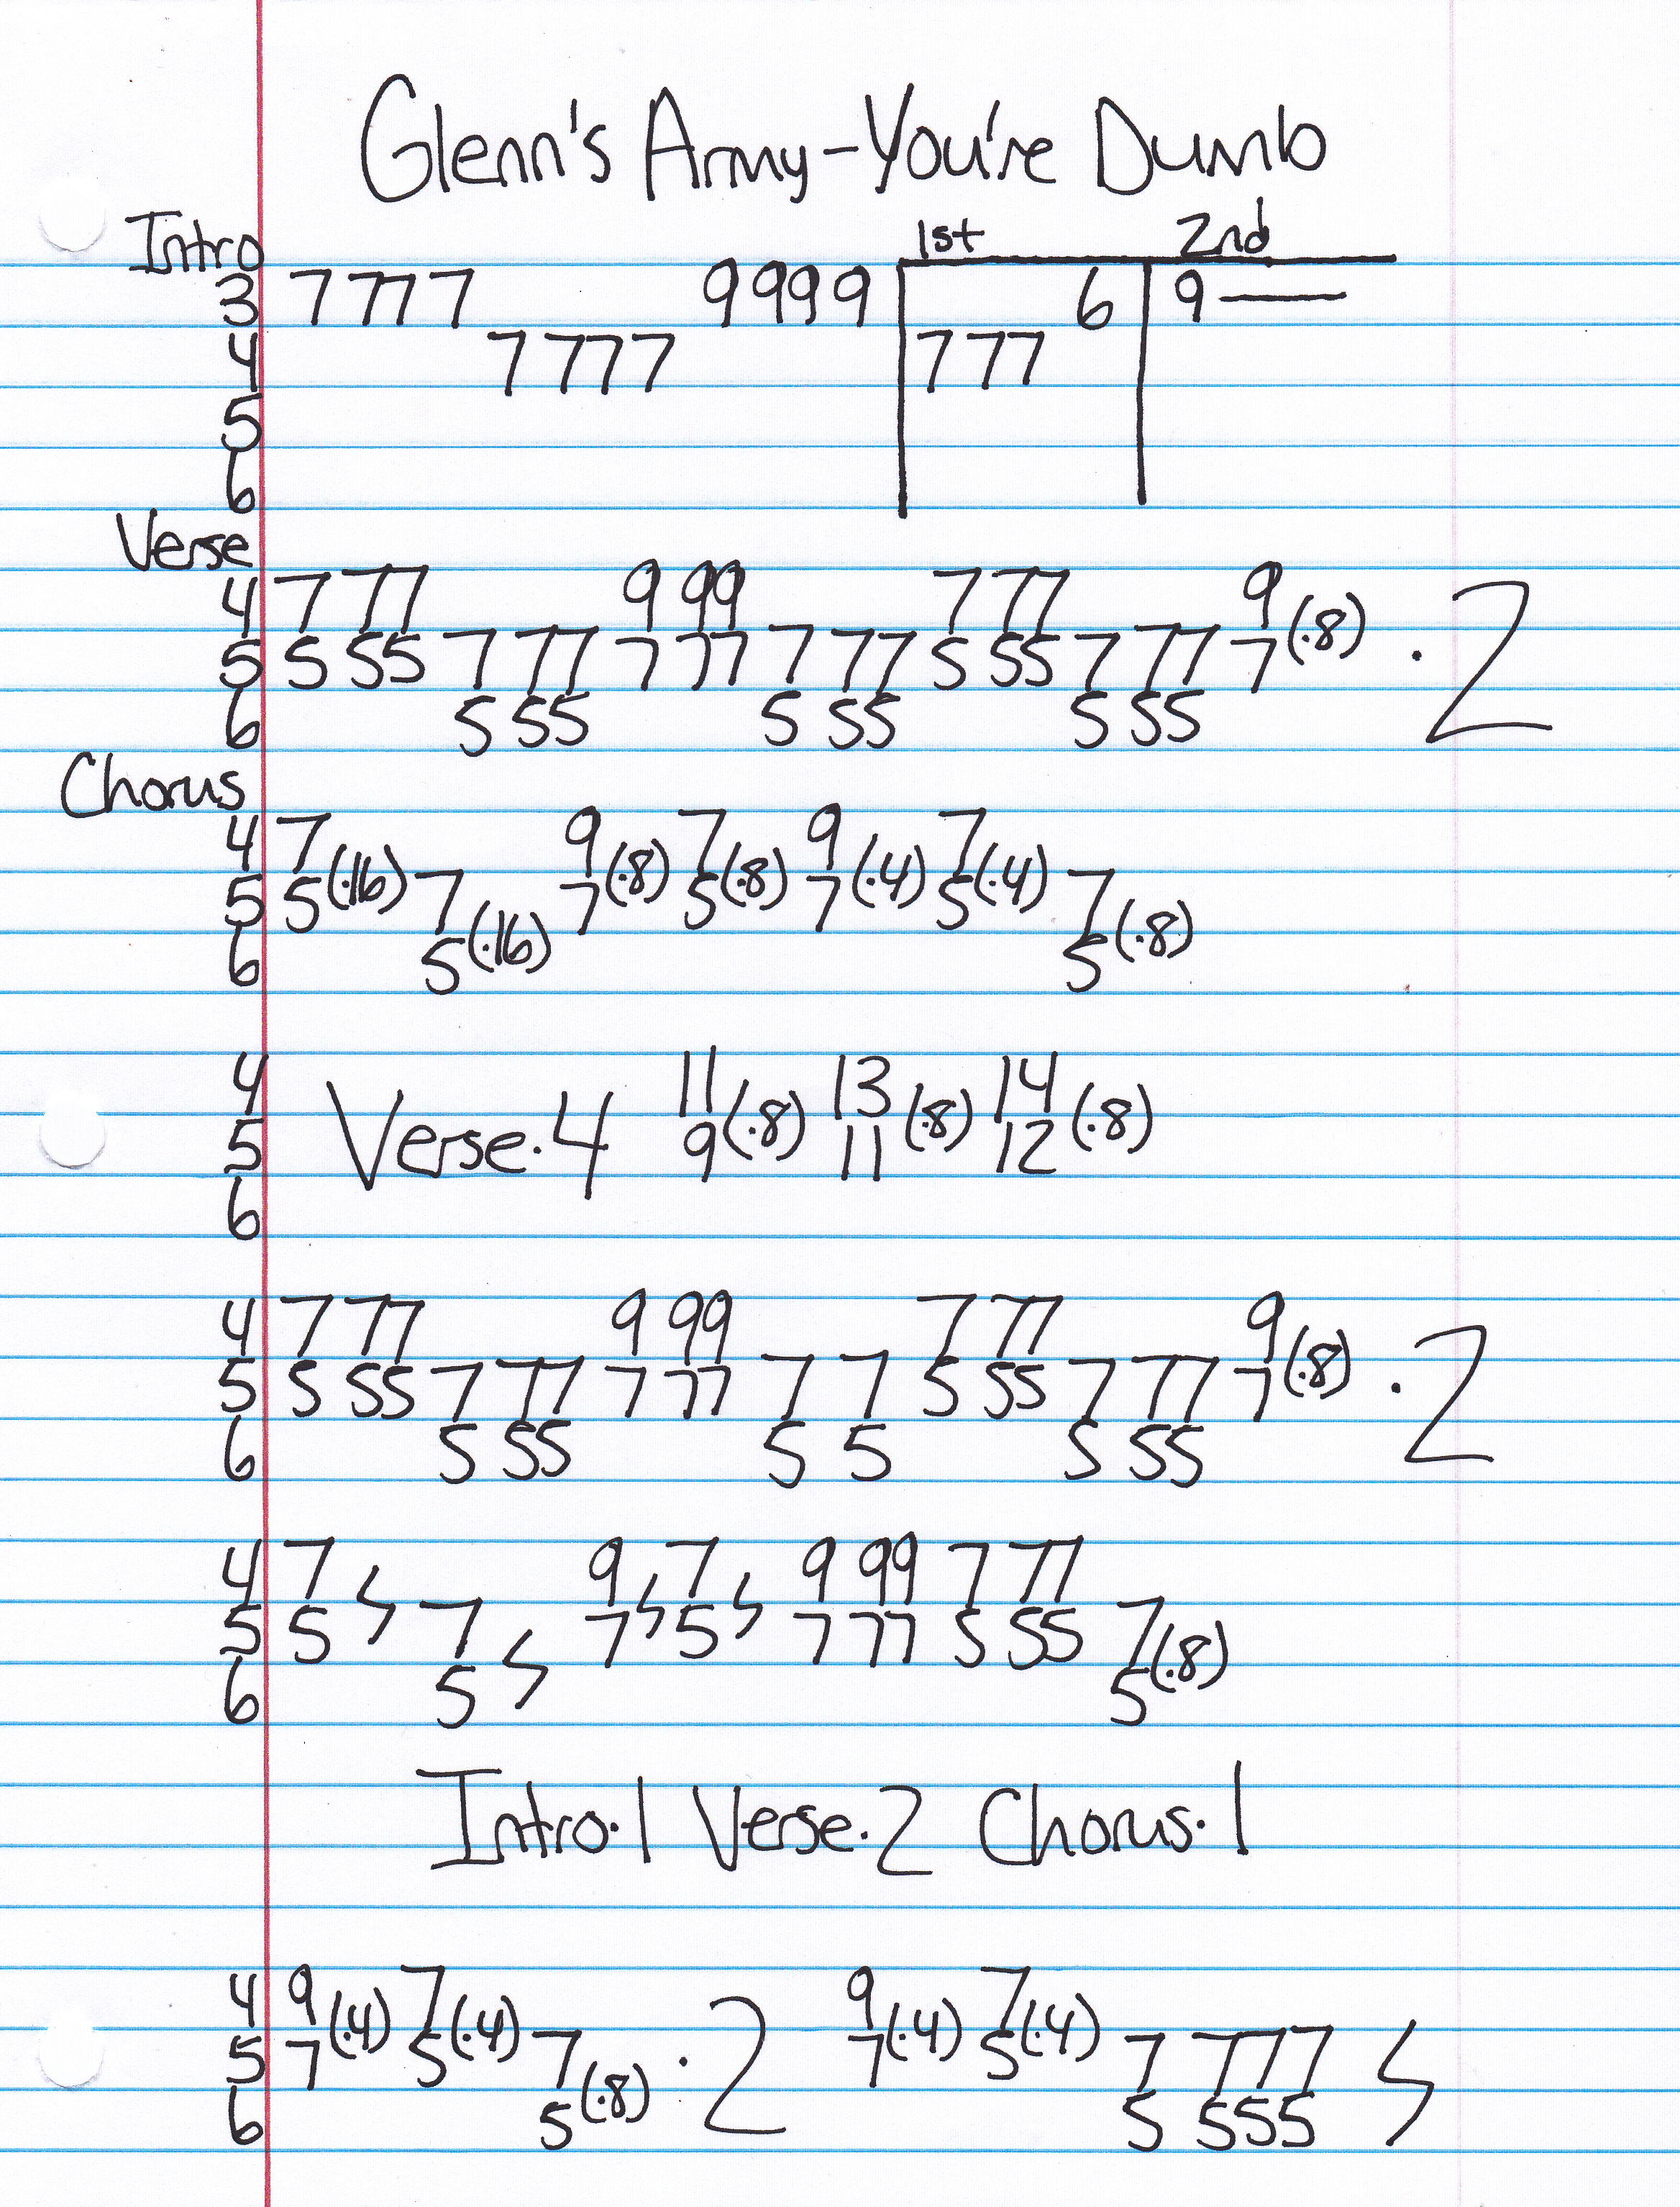 Glenn's Army-You're Dumb
Intro 1st 2nd
3 7 777 9 999 6 9 —
4 7 777 777
5
6
Verse
4 7 77 9 99 7 77 9
5 5 55 7 77 7 77 7 77 5 55 7 77 7 (·8) · 2
6 5 55 5 55 5 55
Chorus
4 7 9 7 9 7
5 5 (·16) 7 7 (·8) 5 (·8) 7 (·4) 5 (·4) 7
6 5 (·16) 5 (·8)
4 11 13 14
5 Verse·4 9 (·8) 11 (·8) 12 (·8)
6
4 7 77 9 99 7 77 9
5 5 55 7 77 7 77 7 7 5 55 7 77 7 (·8) · 2
6 5 55 5 5 5 55
4 7 9 7 9 99 7 77
5 5 7 7 5 7 77 5 55 7
6 5 5 (·8)
Intro·1 Verse·2 Chorus·1
4 9 7 9 7
5 7 (·4) 5 (·4) 7 · 2 7 (·4) 5 (·4) 7 777
6 5 (·8) 5 555